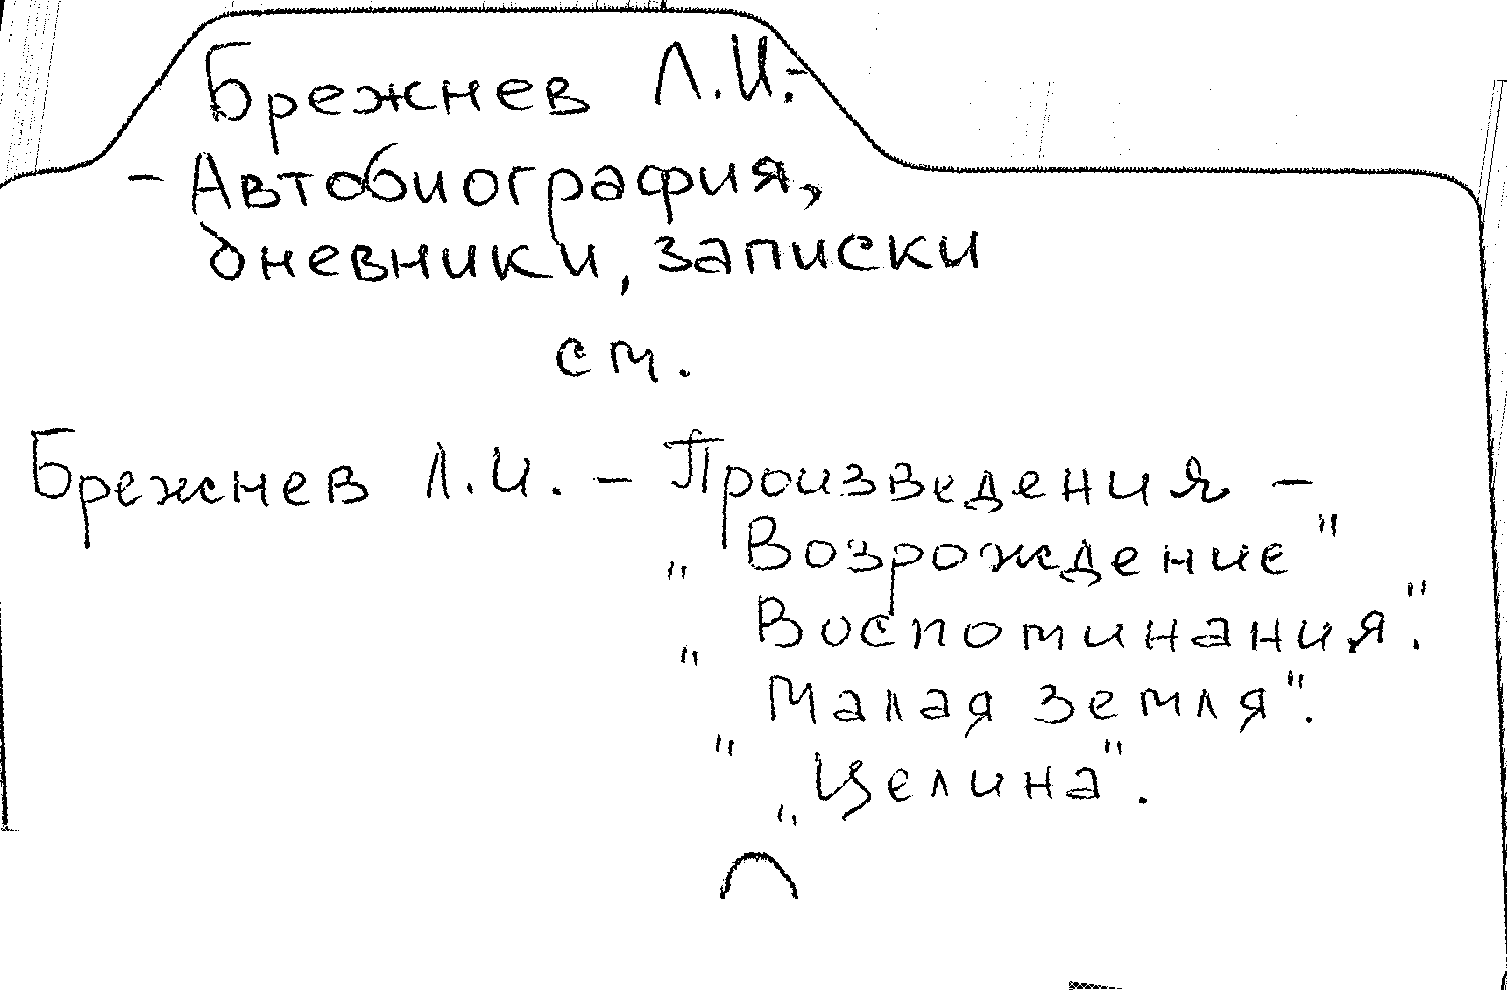 Брежнев Л.И.-
- Автобиография,
дневники, записки
см.
Брежнев Л.И. - Произведения -
„Возрождение"
„Воспоминания".
„Малая земля".
„Целина".